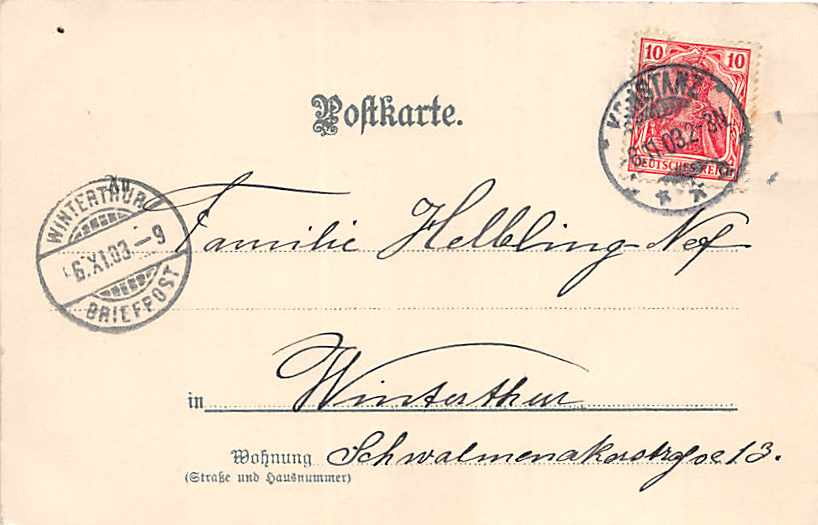 Postkarte.
10 10
DEUTSCHES REICH
KONSTANZ
6.11.03.2-3N.
WINTERTHUR
6.XI.03.-9
BRIEFPOST
An
Familie Helbling-Nef
in Winterthur
Wohnung Schwalmenakerstrasse 13.
(Straße und Hausnummer)